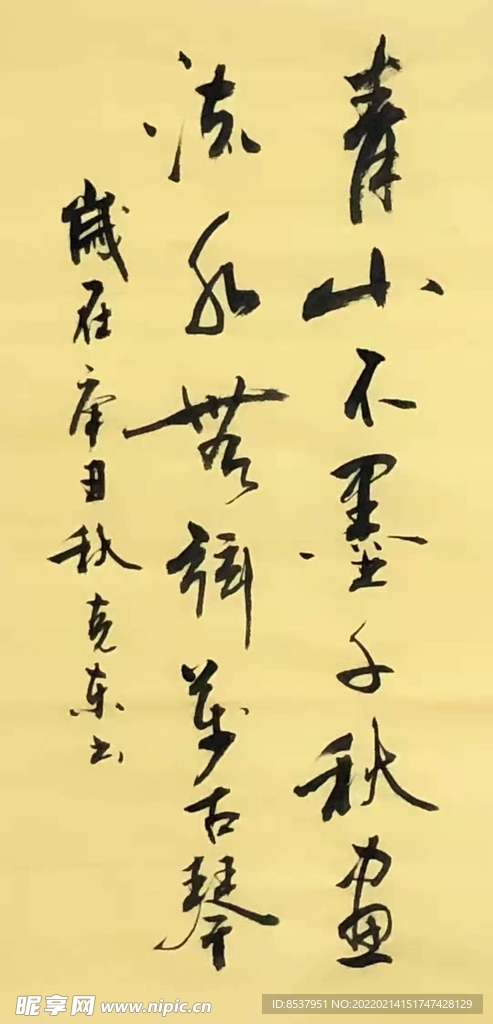 青山不墨千秋畫
流水無弦萬古琴
歲在辛丑秋克东书
昵享网 www.nipic.cn
ID:8537951 NO:20220214151747428129